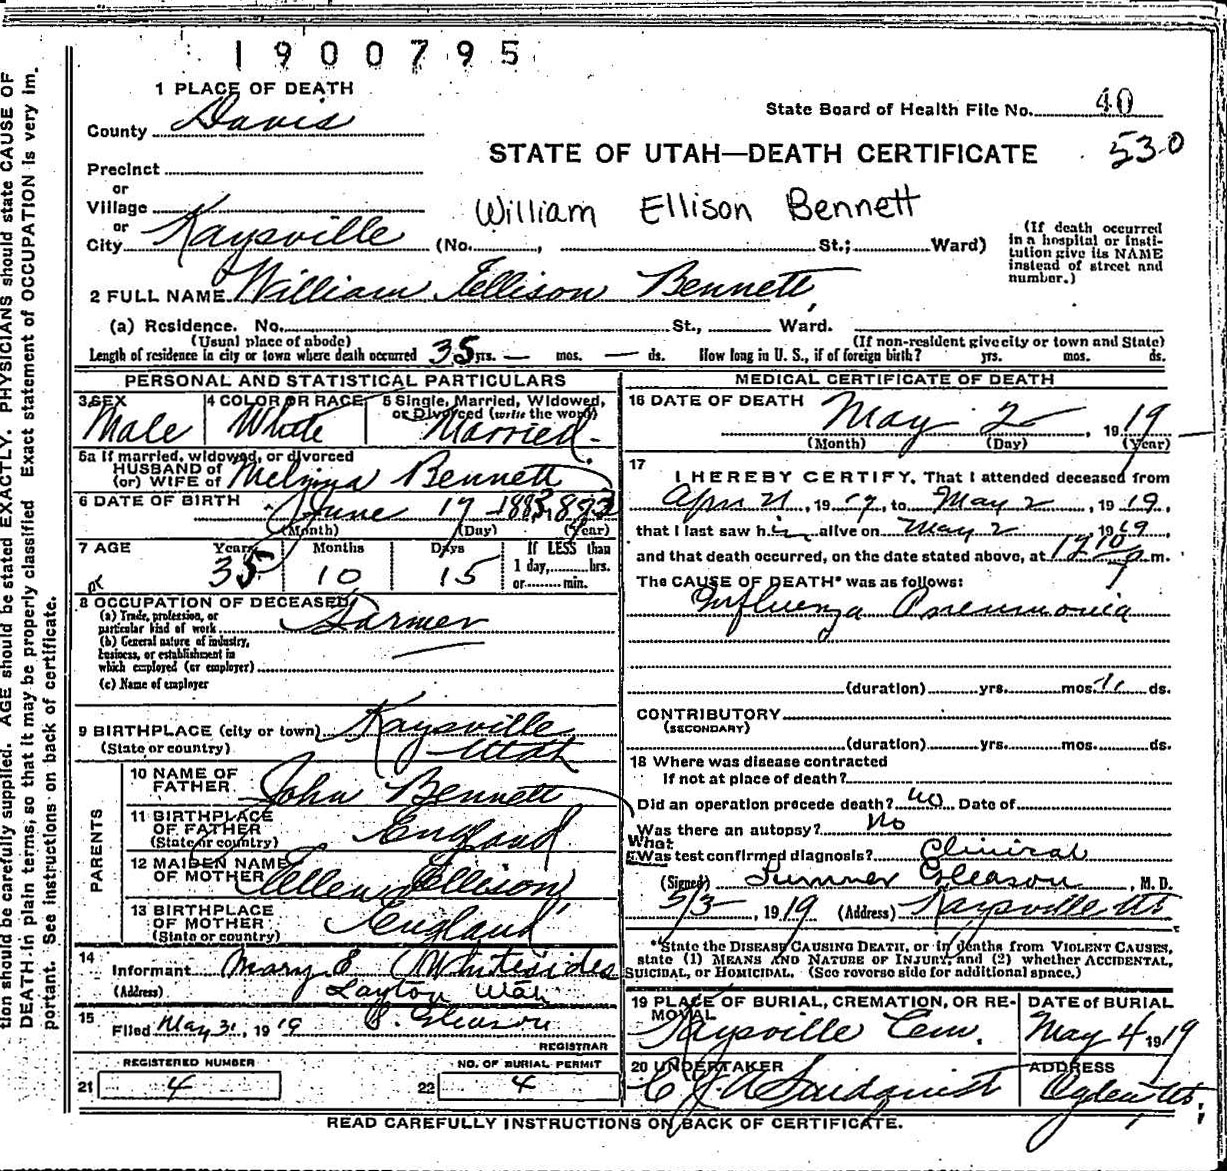 1900795
1 PLACE OF DEATH
County Davis
State Board of Health File No. 40
530
STATE OF UTAH—DEATH CERTIFICATE
Precinct
or
Village
William Ellison Bennett
or
City Kaysville (No. , St.; Ward)
(If death occurred in a hospital or institution give its NAME instead of street and number.)
2 FULL NAME William Ellison Bennett
(a) Residence. No. St., Ward.
(Usual place of abode) (If non-resident give city or town and State)
Length of residence in city or town where death occurred 35 yrs. — mos. — ds. How long in U. S., if of foreign birth? yrs. mos. ds.
PERSONAL AND STATISTICAL PARTICULARS
3 SEX Male
4 COLOR OR RACE White
5 Single, Married, Widowed, or Divorced (write the word) Married
5a If married, widowed, or divorced
HUSBAND of
(or) WIFE of Bennett
6 DATE OF BIRTH June 17 1883
(Month) (Day) (Year)
7 AGE Years Months Days If LESS than
35 10 15 1 day, hrs.
or min.
8 OCCUPATION OF DECEASED
(a) Trade, profession, or
particular kind of work Farmer
(b) General nature of industry,
business, or establishment in
which employed (or employer)
(c) Name of employer
9 BIRTHPLACE (city or town) Kaysville
(State or country) Utah
PARENTS
10 NAME OF FATHER John Bennett
11 BIRTHPLACE OF FATHER England
(State or country)
12 MAIDEN NAME OF MOTHER Ellen Ellison
13 BIRTHPLACE OF MOTHER England
(State or country)
14
Informant Mary E Whitesides
(Address) Layton Utah
15
Filed May 3, 1919 S. Gleason
REGISTRAR
REGISTERED NUMBER
21 4
NO. OF BURIAL PERMIT
22 4
MEDICAL CERTIFICATE OF DEATH
16 DATE OF DEATH May 2, 1919
(Month) (Day) (Year)
17
I HEREBY CERTIFY, That I attended deceased from
April 21, 1919, to May 2, 1919,
that I last saw him alive on May 2 1919,
and that death occurred, on the date stated above, at 1210 a m.
The CAUSE OF DEATH* was as follows:
Influenza Pneumonia
(duration) yrs. mos. 11 ds.
CONTRIBUTORY
(SECONDARY)
(duration) yrs. mos. ds.
18 Where was disease contracted
If not at place of death?
Did an operation precede death? no Date of
Was there an autopsy? No
What
Was test confirmed diagnosis? Clinical
(Signed) Sumner Gleason, M. D.
5/3, 1919 (Address) Kaysville Ut
*State the DISEASE CAUSING DEATH, or in deaths from VIOLENT CAUSES,
state (1) MEANS AND NATURE OF INJURY, and (2) whether ACCIDENTAL,
SUICIDAL, or HOMICIDAL. (See reverse side for additional space.)
19 PLACE OF BURIAL, CREMATION, OR REMOVAL
Kaysville Cem.
DATE of BURIAL
May 4 1919
20 UNDERTAKER
ADDRESS
Ogden Ut
READ CAREFULLY INSTRUCTIONS ON BACK OF CERTIFICATE.
tion should be carefully supplied. AGE should be stated EXACTLY. PHYSICIANS should state CAUSE OF
DEATH in plain terms, so that it may be properly classified Exact statement of OCCUPATION is very im.
portant. See instructions on back of certificate.